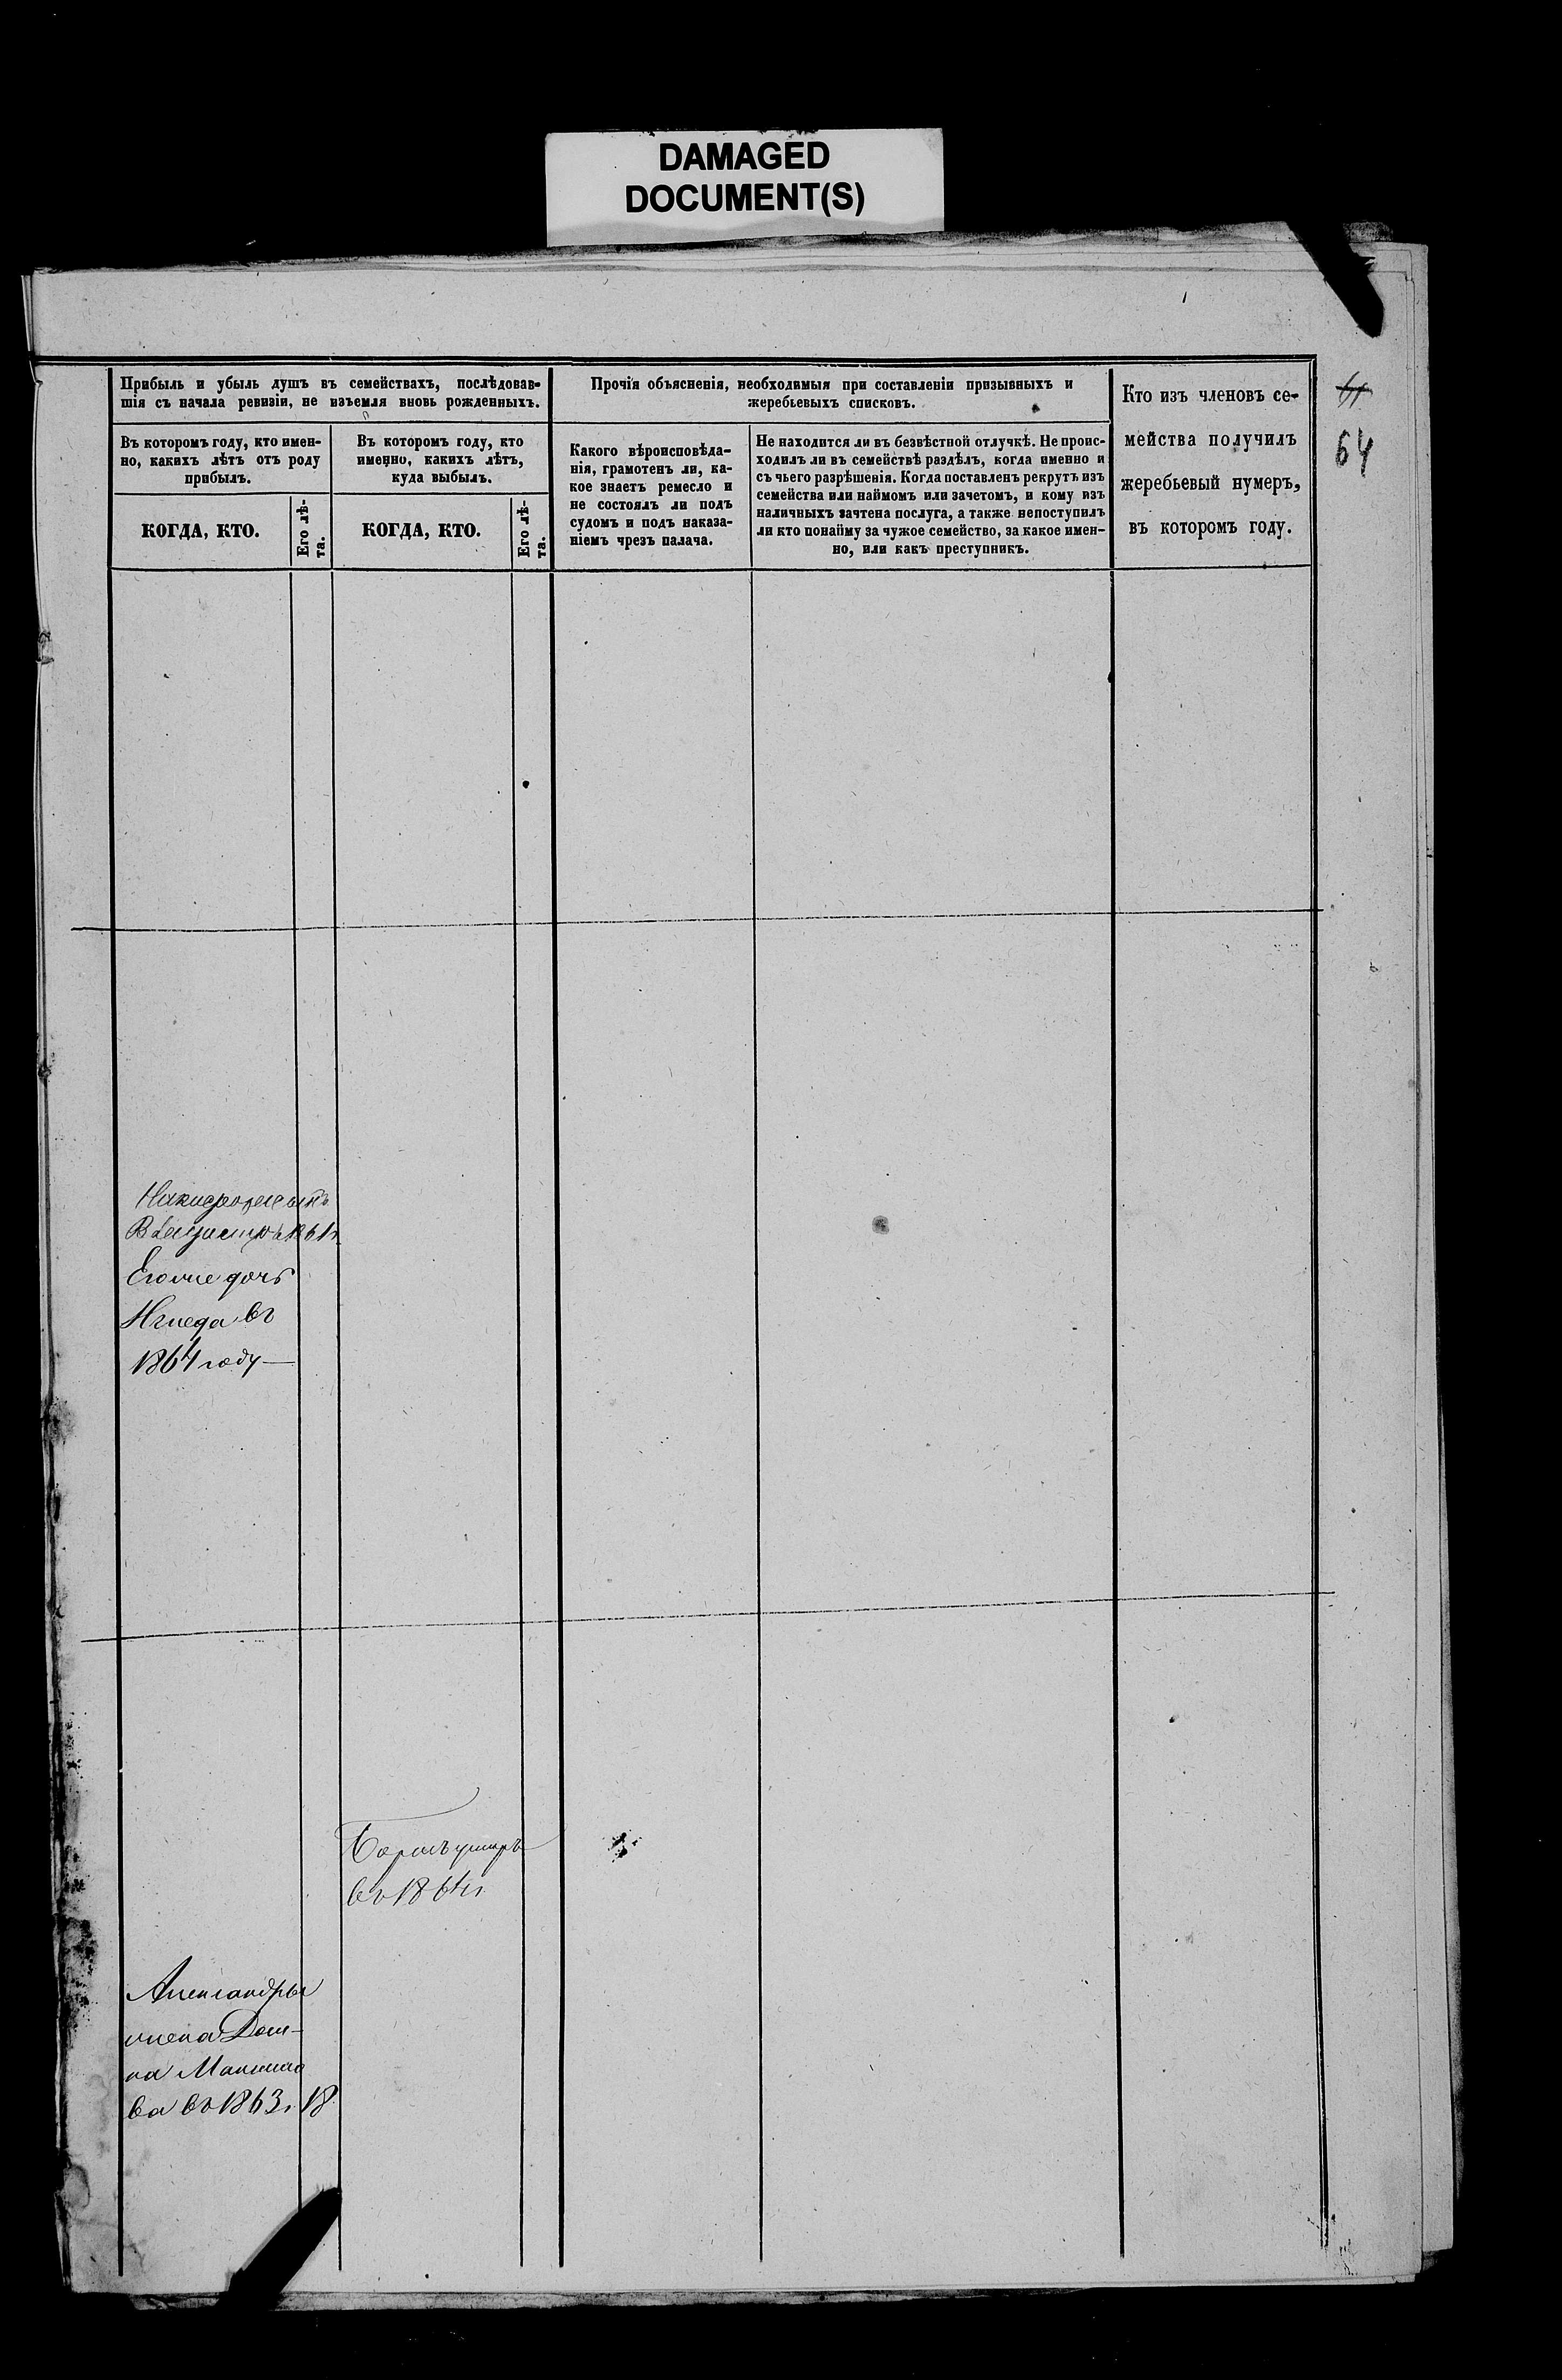 DAMAGED
DOCUMENT(S)
Прибыль и убыль душъ въ семействахъ, послѣдовав-
шія съ начала ревизіи, не изъемля вновь рожденныхъ.
Прочія объясненія, необходимыя при составленіи призывныхъ и
жеребьевыхъ списковъ.
Кто изъ членовъ се-
мейства получилъ
жеребьевый нумеръ,
въ которомъ году.
61
64
Въ которомъ году, кто имен-
но, какихъ лѣтъ отъ роду
прибылъ.
Въ которомъ году, кто
именно, какихъ лѣтъ,
куда выбылъ.
Какого вѣроисповѣда-
нія, грамотенъ ли, ка-
кое знаетъ ремесло и
не состоялъ ли подъ
судомъ и подъ наказа-
ніемъ чрезъ палача.
Не находится ли въ безвѣстной отлучкѣ. Не проис-
ходилъ ли въ семействѣ раздѣлъ, когда именно и
съ чьего разрѣшенія. Когда поставленъ рекрутъ изъ
семейства или наймомъ или зачетомъ, и кому изъ
наличныхъ зачтена послуга, а также непоступилъ
ли кто понайму за чужое семейство, за какое имен-
но, или какъ преступникъ.
КОГДА, КТО.
Его лѣ-
та.
КОГДА, КТО.
Его лѣ-
та.
1861г.
Его же дочь
въ
1864 году —
умеръ
въ 1864г.
Александры
жена Дом-
на Максимо
ва въ 1863г. 18